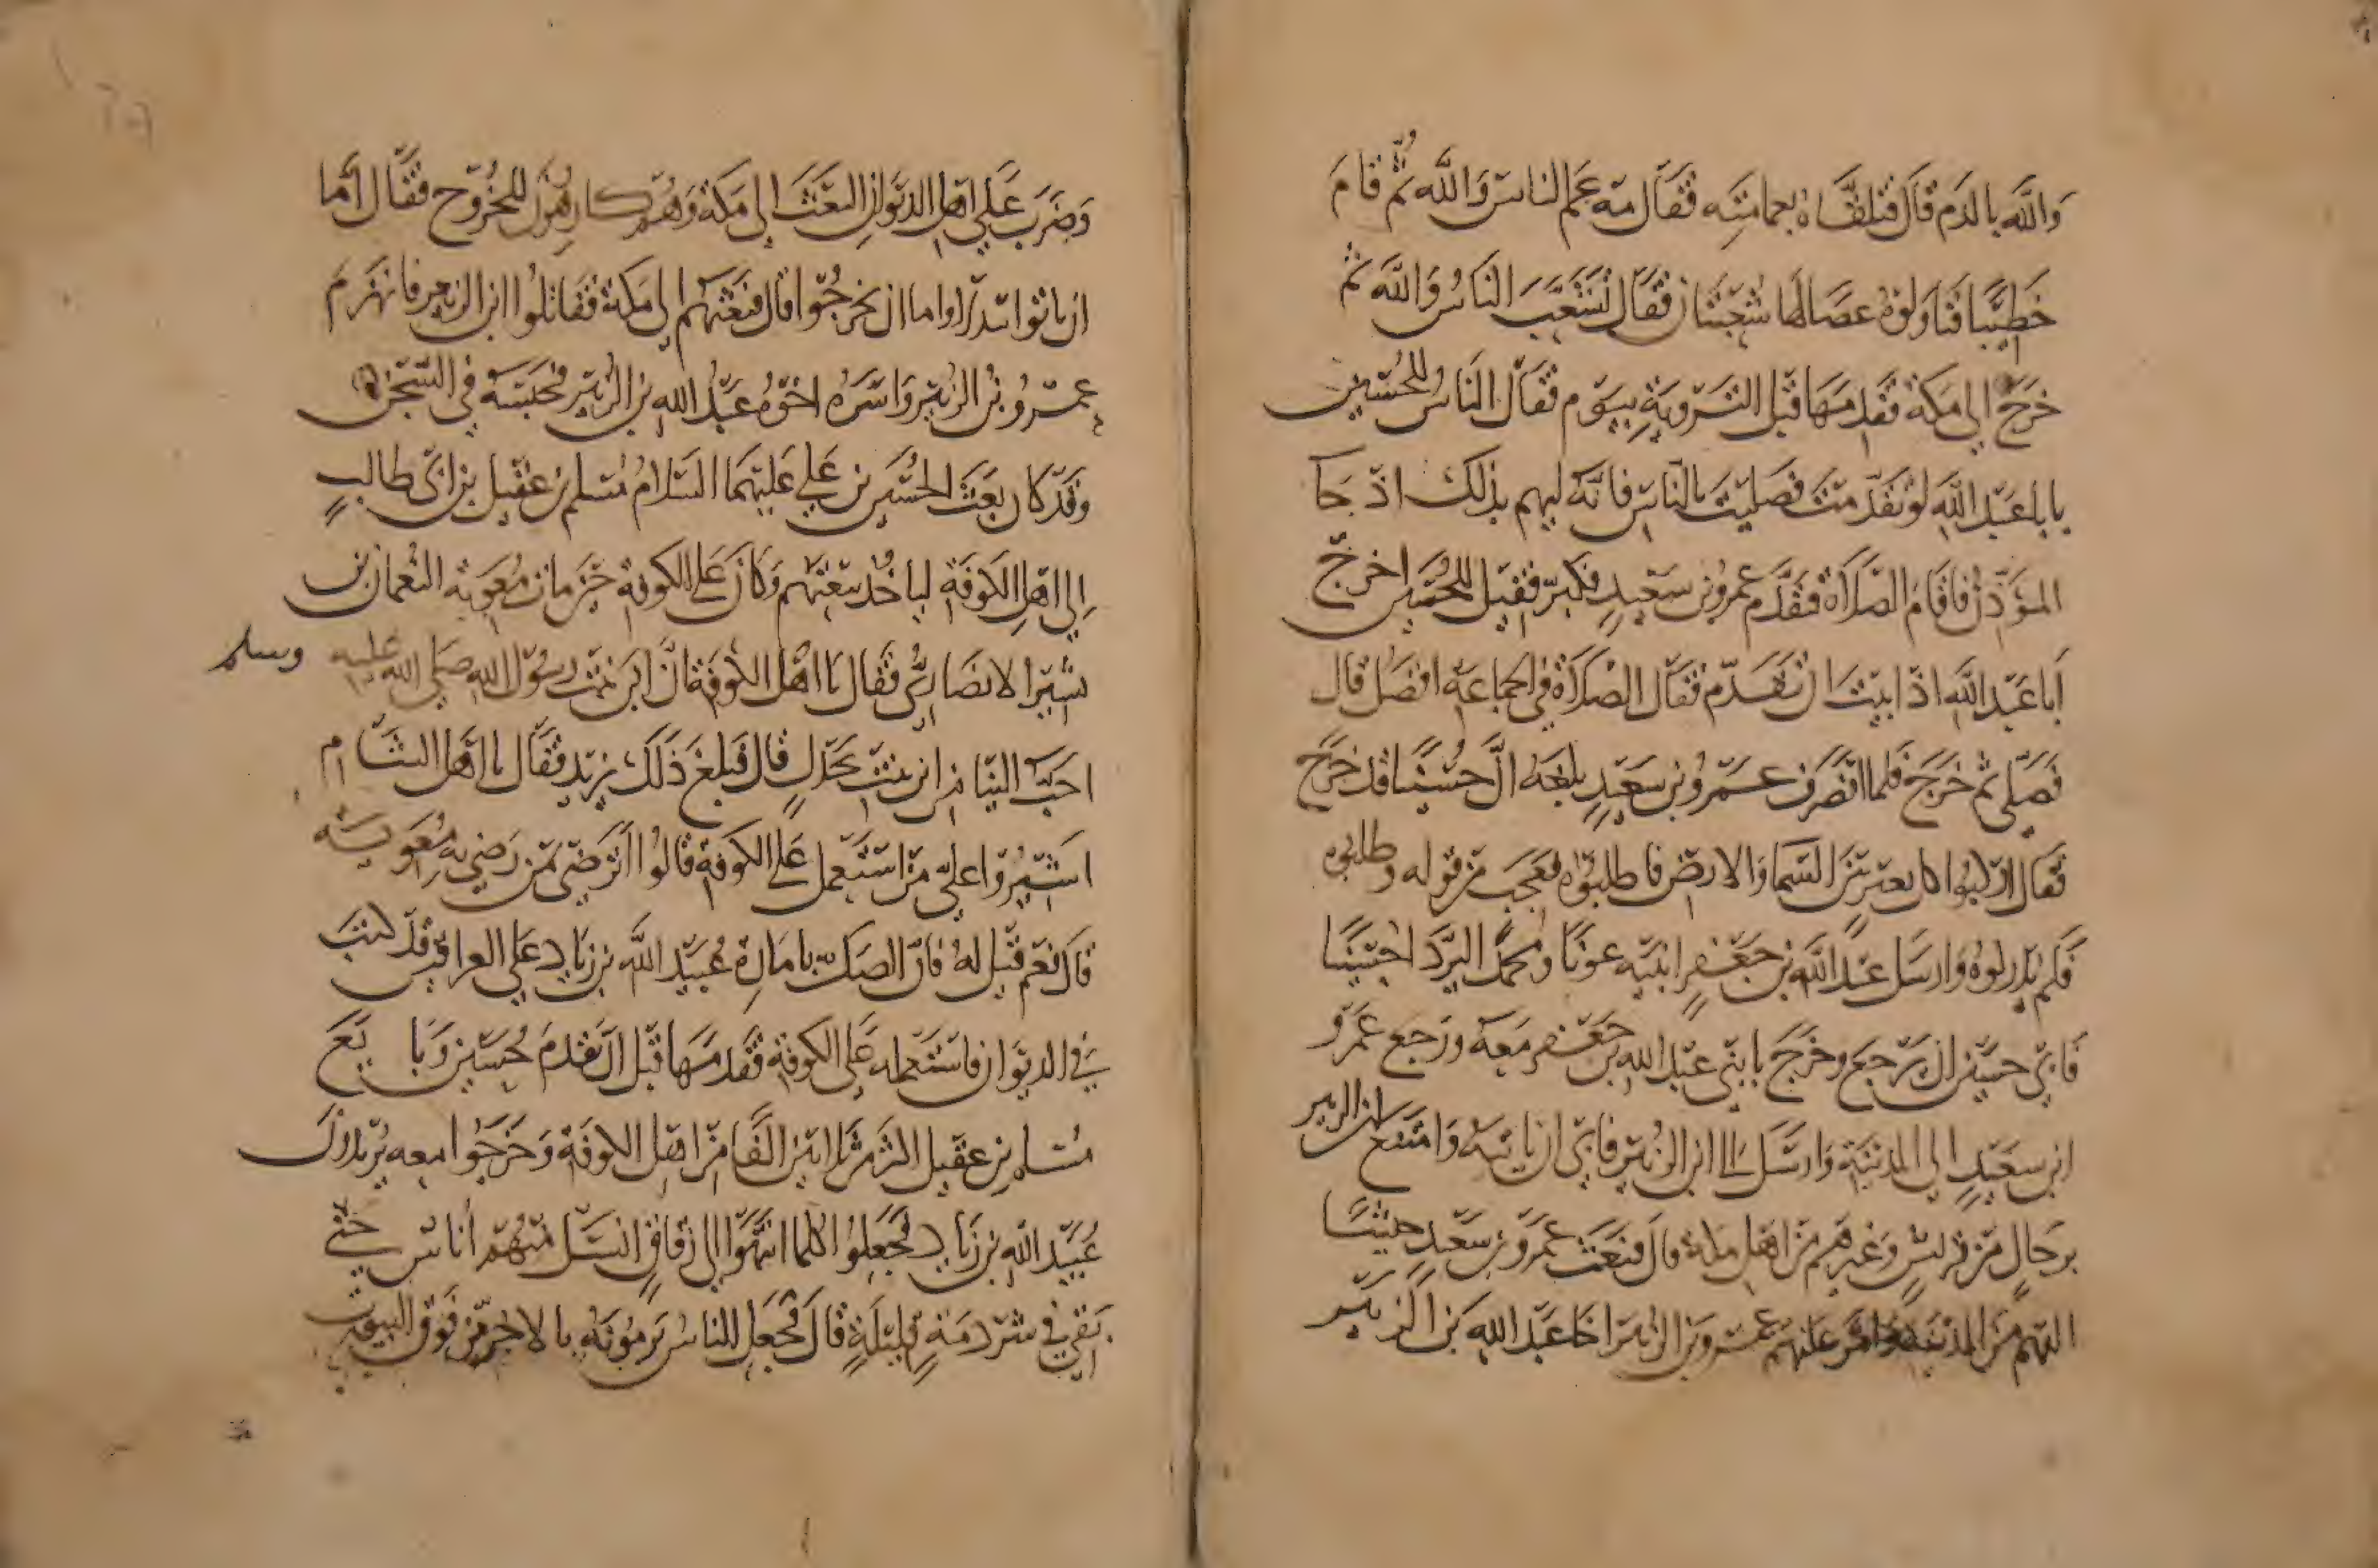 وَاللَّهِ بالدَم قَالَ فتلقَّاهُ بعمامَتِه فقَالَ مَه عَمّ الناسَ وَاللَّه ثُمّ قامَ
خَطِيبًا فنَاوَلوهُ عصًا لهَا شُعْبَتَان فقَالَ تَشَعَّبَ النَاسُ وَاللَّهَ ثم
خَرَجَ الي مَكة فقَدِمَهَا قَبْل التَّرْوِيَةِ بيَوم فقَالَ النَاسُ للحُسَين
يا باعَبْدِ اللَّه لو تقدّمتَ فصَليتَ بالناسِ فانّه ليهم بذلكَ اذ جَا
المؤَذّنُ فاقامَ الصَلاَةَ فتقدَّم عمرُو بن سَعيدٍ فكبّر فقيل للحُسَين اخرج
أبا عَبْدِ اللَّه اذ ابيتَ ان تتقدّم فقَالَ الصَلاَةُ في الجماعَة افضَلُ قال
فَصَلّى ثم خَرَجَ فلما انصَرَفَ عَمْرُو بن سَعيدٍ بلغَه انَّ حسَينًا قد خرَجَ
فقَالَ اركبُوا كل بعير بَيْنَ السَما وَالارض فاطلبُوه فعجِبَ من قوله وطلبوه
فَلم يُدركوهُ وَارسَل عَبْدُ اللَّه بن جَعْفرٍ ابنَيه عونًا ومحمدًا ليردّا حسَينًا
فَابى حسَين ان يرجع وخَرَجَ بابنَي عَبْدِ الله بن جعْفر معَه ورَجعَ عَمْرو
ابن سعَيدٍ الي المدينَة وَارسَل الى ابن الزبَير فابى ان ياتيَهُ وَامتنع ابن الزبير
برجَالٍ من قريش وَغيرهم من اهل مكة قال فبعَثَ عمرو بن سَعيدٍ جيشًا
اليهم من المدينَة وامّر عليهم عمرو بن الزبير اخا عَبْدِ الله بن الزبير
وَضرَبَ عَلي اهل الديوانِ البَعْثَ الي مَكة وَهُم كارِهُونَ للخُرُوج فقَال أما
ان ياتوا بَدلا واما ان يخرجُوا قال فبَعَثهم الي مكة فقاتلُوا ابن الزبير فانهزمَ
عمرُو بن الزبَير وَاسَرَهُ اخوهُ عبدُ الله بن الزبَير فحبَسَه في السجن
وقَد كان بَعَثَ الحُسَين بن عَلي عَليهمَا السَلامُ مُسلم بن عقيل بن ابى طالبٍ
إِلي اهل الكوفَة لياخُذَ بيعَتهم وَكانَ على الكوفة حين ماتَ مُعَويَة النعمانُ بن
بَشِير الانصَاريُّ فقَالَ يا اهْلَ الكوفَة انَّ ابن بنتِ رسُول الله صَلى الله عليه وسلم
احَبّ الينَا من ابن بنت بَحدلٍ قال فبلغ ذَلكَ يزيد فقَال يا اهل الشَام
اشيرُوا علي مَن استعمل على الكوفة قالُوا اترضى بمن رَضِي به مُعويَة
قالَ نَعَم قيل لهُ فانَّ الصَكّ بامَارَة عُبيدِ اللَّه بن زيَاد عَلي العراقين قد كتبَ
في الديوَان فاستَعمله عَلى الكوفة فقدمَهَا قبْل ان يقدمَ حُسَين وَبايَعَ
مُسلم بن عقيل اكثر من ثلاثين الفًا من اهل الكوفة وَخَرَجُوا معه يريدُونَ
عُبيد الله بن زياد فجعلُوا كلما انتهوا الى زقاق انسَلّ منهُم أناس حَتّى
بَقي في شرذمَةٍ قليلَةٍ قالَ فجَعل النَاسُ يَرمُونَه بالاجُر من فَوق البيوت